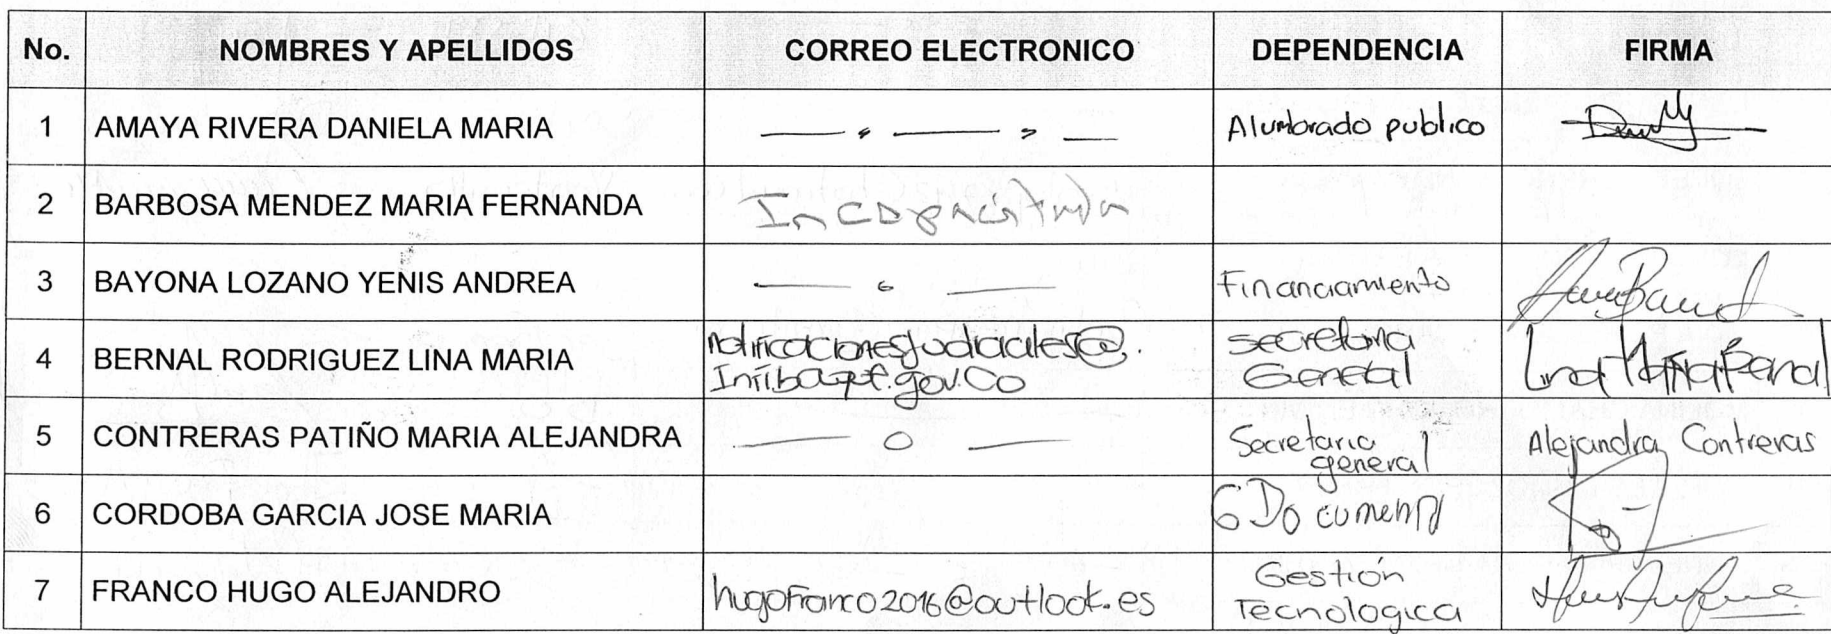 No. NOMBRES Y APELLIDOS CORREO ELECTRONICO DEPENDENCIA FIRMA
1 AMAYA RIVERA DANIELA MARIA Alumbrado publico
2 BARBOSA MENDEZ MARIA FERNANDA Incapacitada
3 BAYONA LOZANO YENIS ANDREA Financiamiento
4 BERNAL RODRIGUEZ LINA MARIA notificacionesjudiciales@. secretaria Lina Maria Bernal
General
5 CONTRERAS PATIÑO MARIA ALEJANDRA Secretaria Alejandra Contreras
general
6 CORDOBA GARCIA JOSE MARIA
7 FRANCO HUGO ALEJANDRO hugofranco2016@outlook.es Gestión
Tecnologica